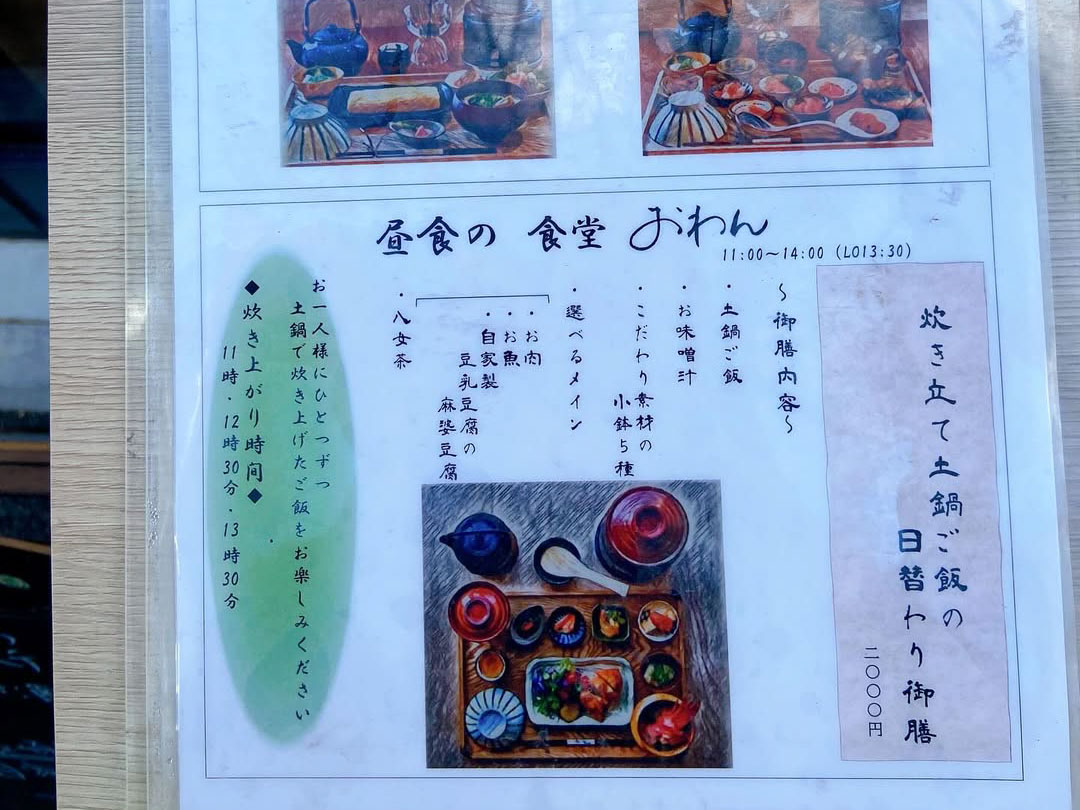 昼食の 食堂 おわん
11:00～14:00 (LO13:30)
炊き立て土鍋ご飯の
日替わり御膳
二〇〇〇円
～御膳内容～
・土鍋ご飯
・お味噌汁
・こだわり素材の
小鉢5種
・選べるメイン
・お肉
・お魚
・自家製
豆乳豆腐の
麻婆豆腐
・八女茶
お一人様にひとつずつ
土鍋で炊き上げたご飯をお楽しみください
◆炊き上がり時間◆
11時・12時30分・13時30分